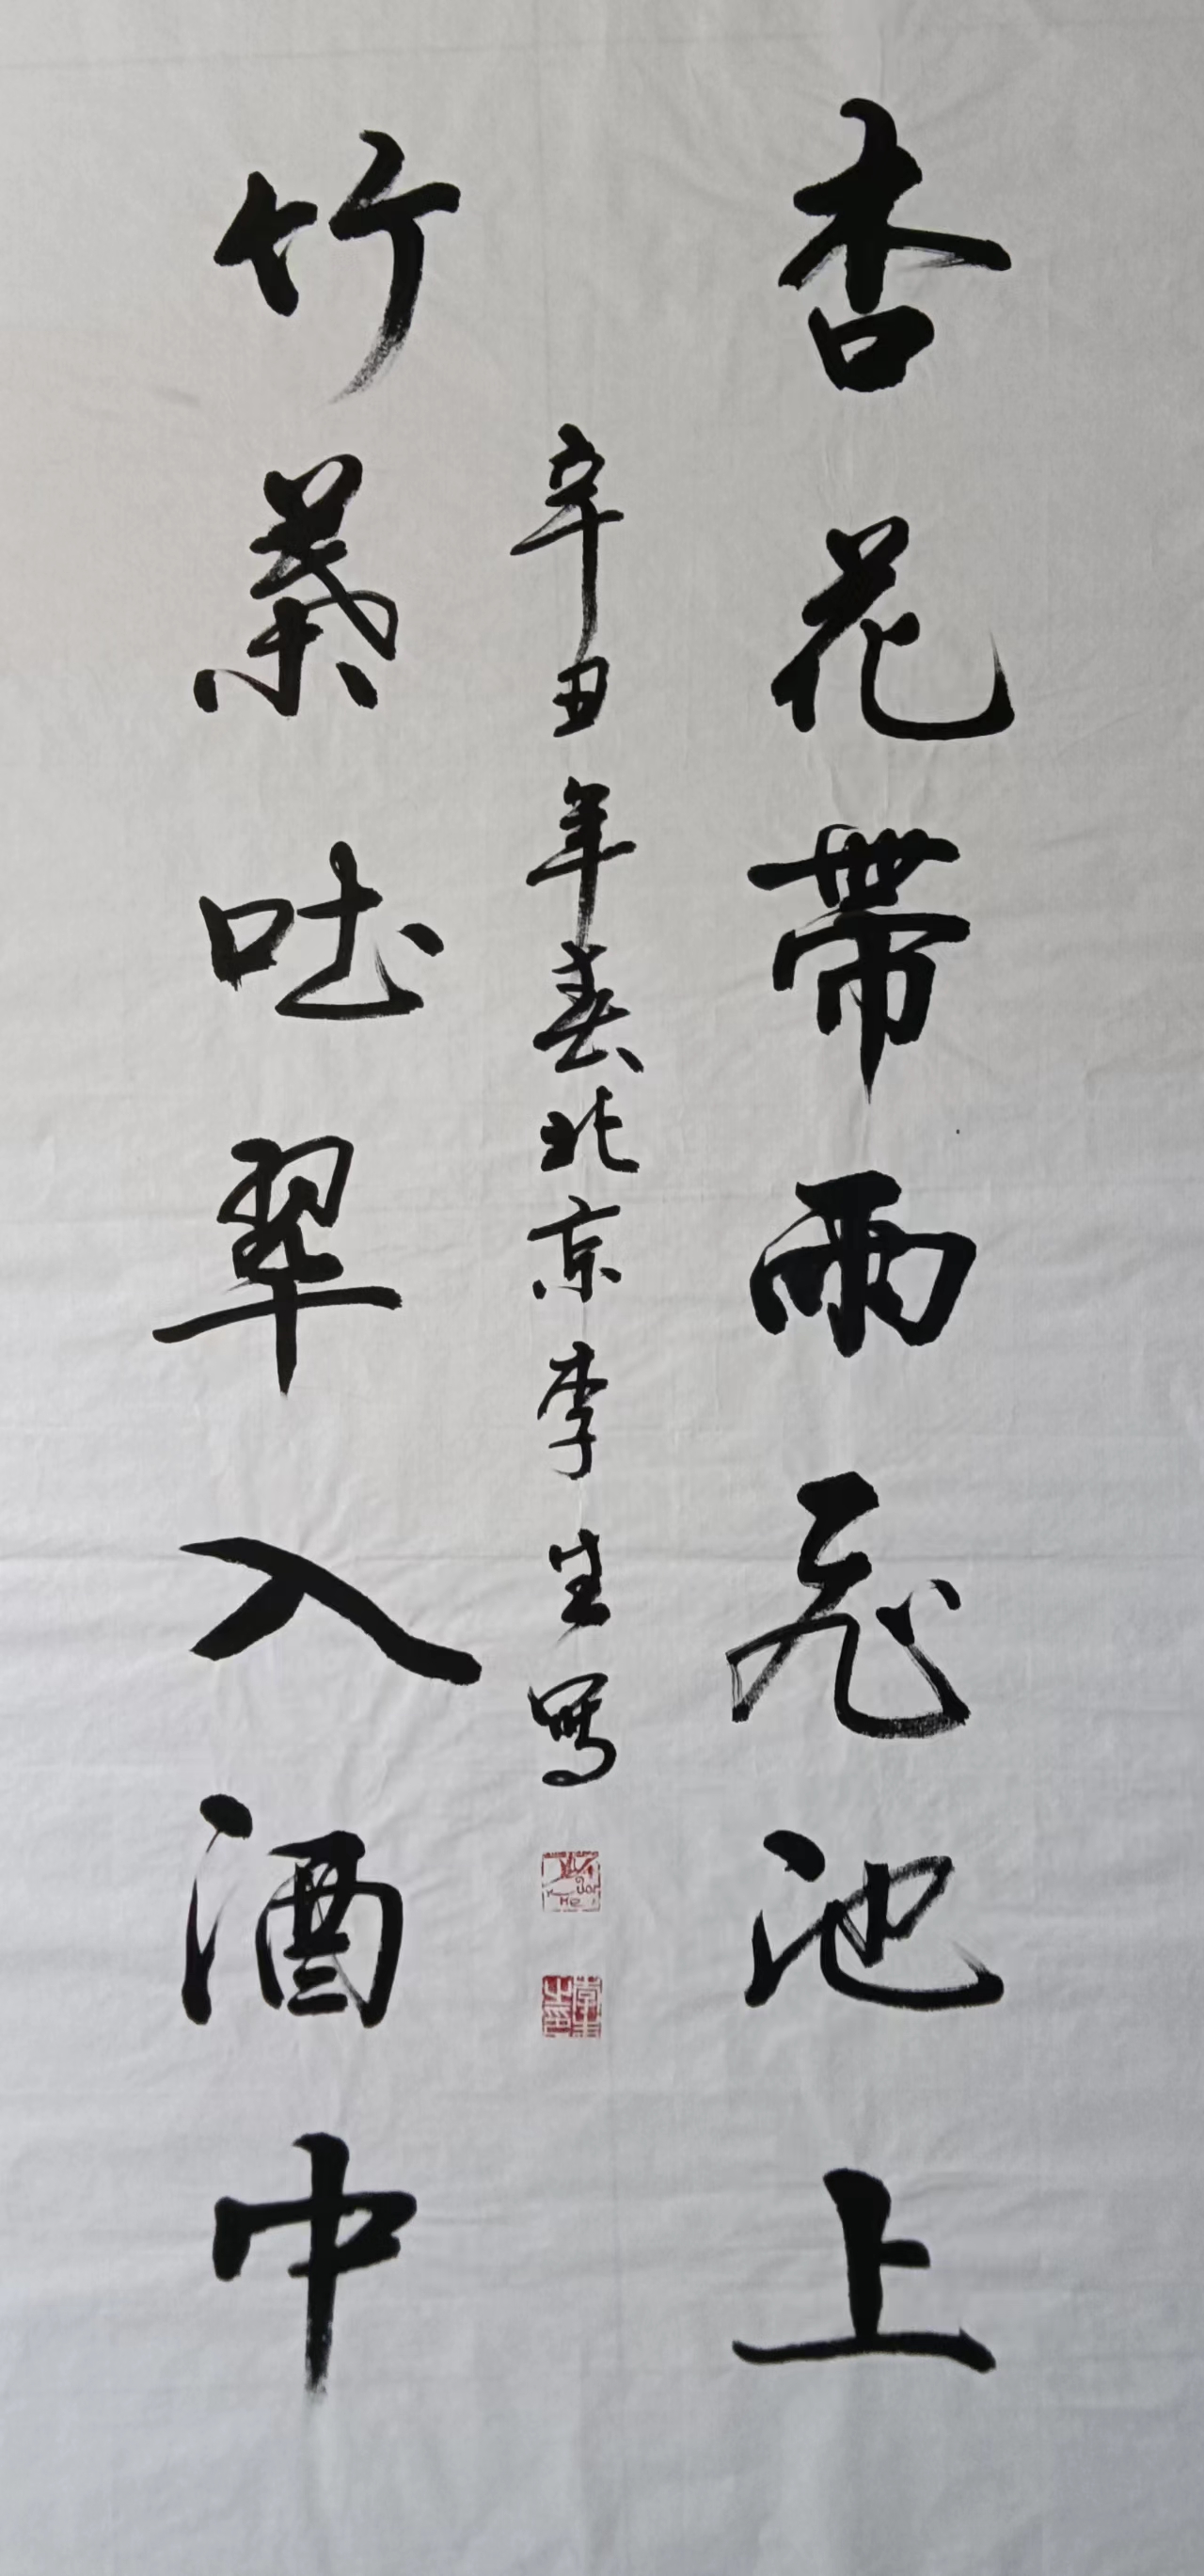 杏花帶雨飛池上
辛丑年春北京李生寫
竹葉吐翠入酒中